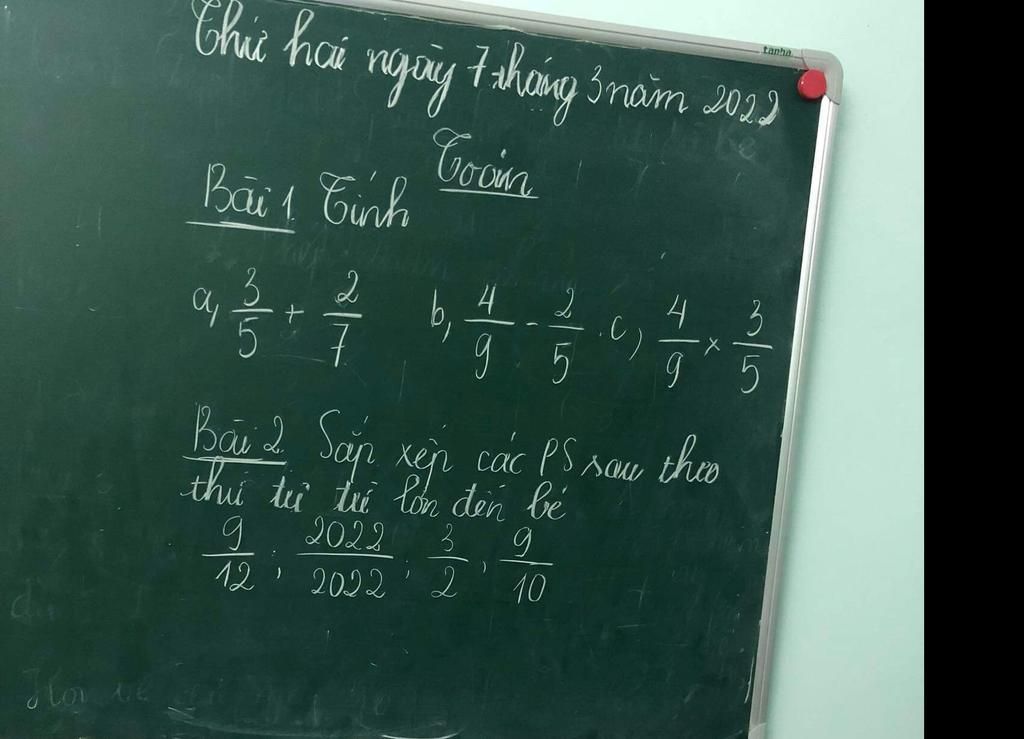 tanha
Thứ hai ngày 7 tháng 3 năm 2022
Toán
Bài 1 Tính
a, 3/5 + 2/7 b, 4/9 - 2/5 . c, 4/9 × 3/5
Bài 2 Sắp xếp các PS sau theo
thứ tự từ lớn đến bé
9/12 ; 2022/2022 ; 3/2 , 9/10